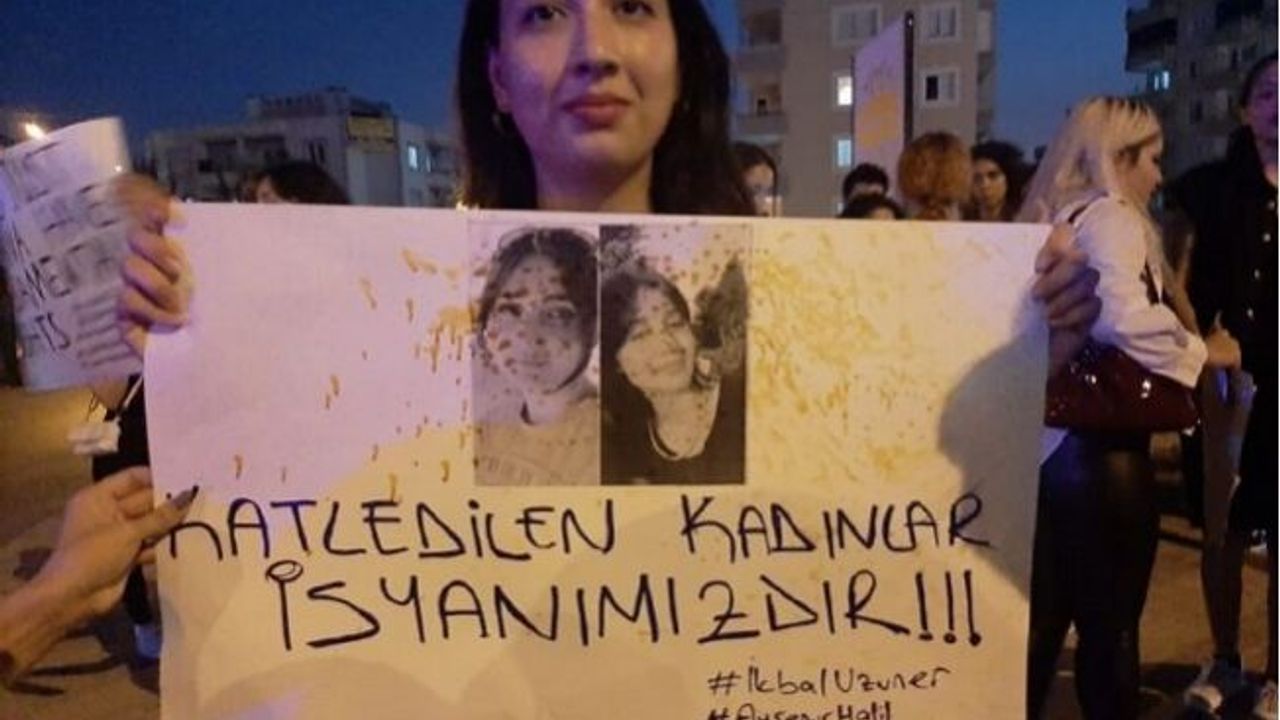 KATLEDİLEN KADINLAR
İSYANIMIZDIR!!!
#İkbalUzuner
#AyşenurHalil